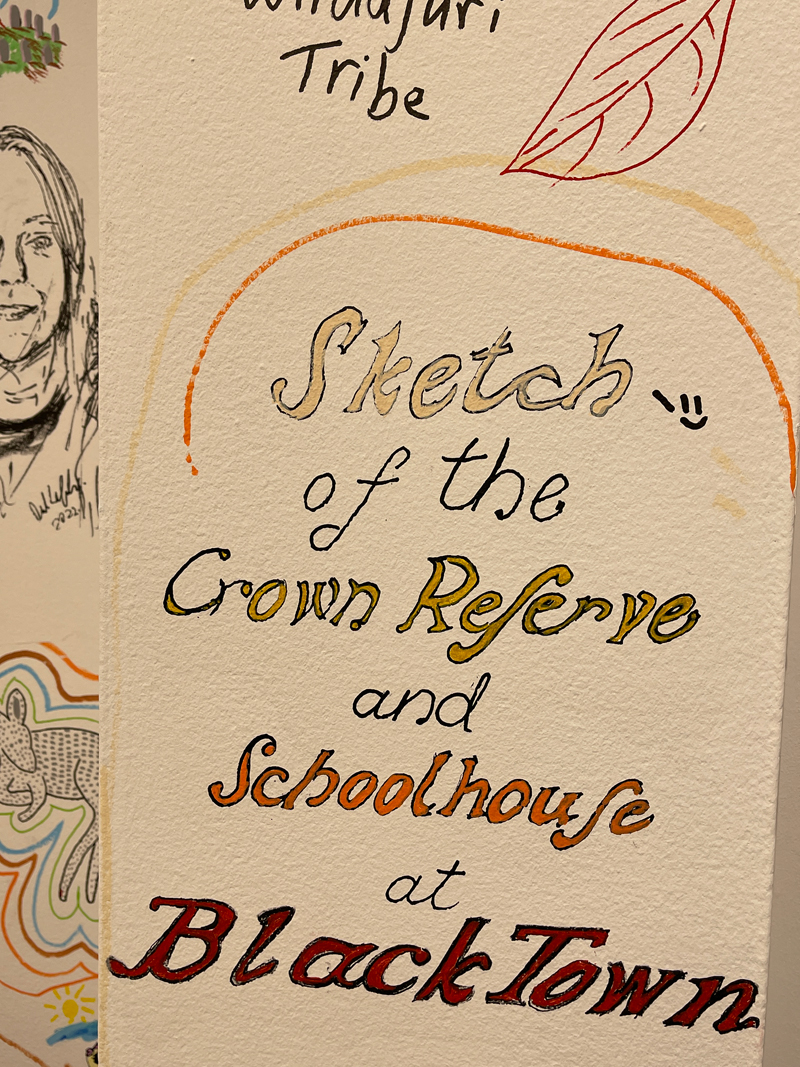 Tribe
Sketch
of the
Crown Reserve
and
Schoolhouse
at
BlackTown
2022